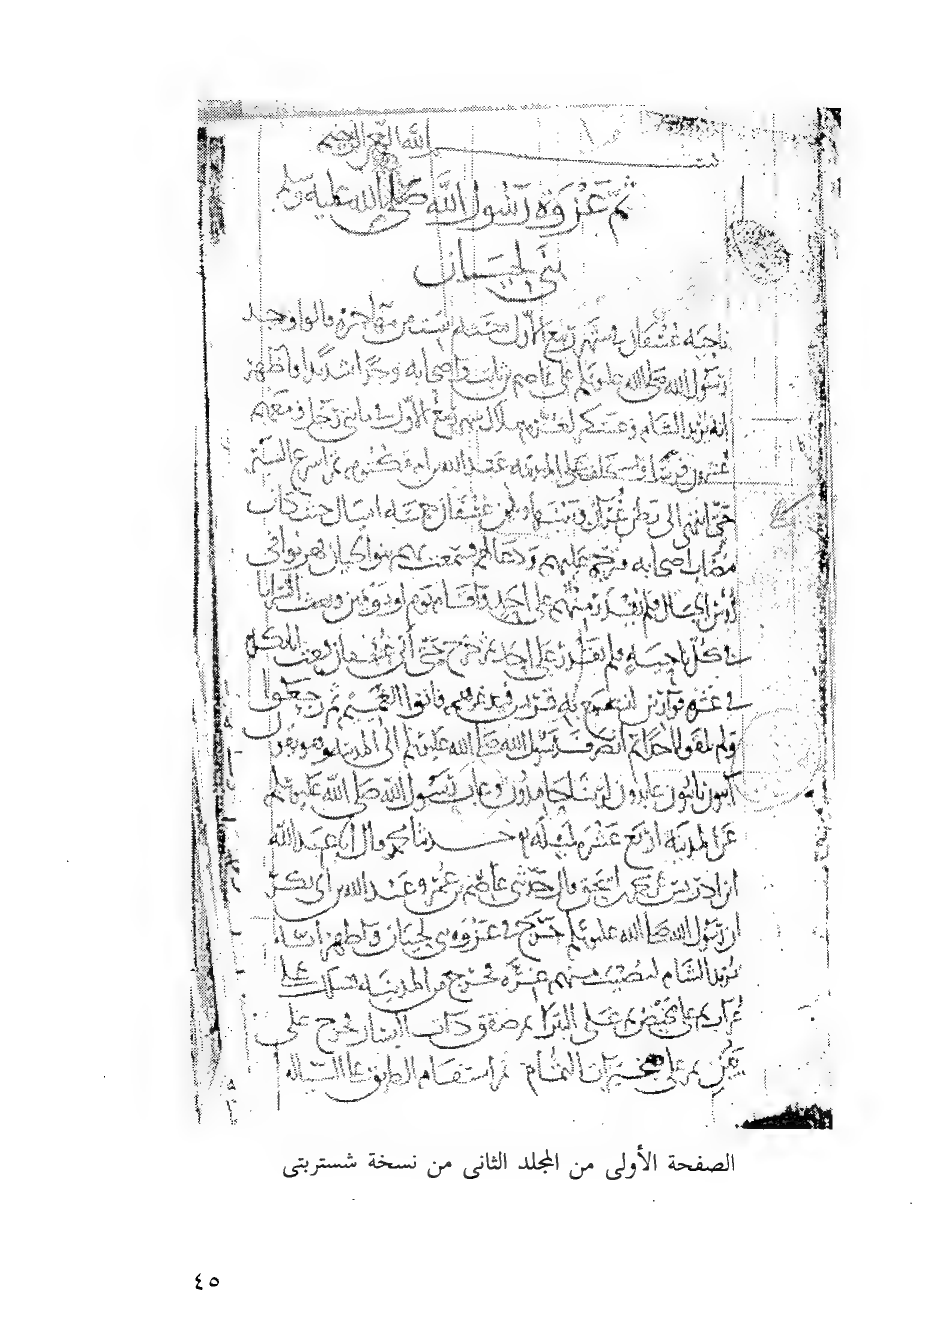 بسم الله الرحمن الرحيم
ثم غزوة رسول الله صلى الله عليه وسلم
بني لحيان
ناحية عسفان في شهر ربيع الأول سنة ست من مهاجره قالوا وجد
رسول الله صلى الله عليه وسلم على عاصم بن ثابت وأصحابه وجدا شديدا فأظهر
أنه يريد الشام وعسكر لغرة هلال شهر ربيع الأول في مائتي رجل ومعهم
عشرون فرسا واستخلف على المدينة عبد الله بن أم مكتوم ثم أسرع السير
حتى انتهى إلى بطن غران وبينها وبين عسفان خمسة أميال حيث كان
مصاب أصحابه فترحم عليهم ودعا لهم فسمعت بهم بنو لحيان فهربوا في
رؤس الجبال فلم يقدر منهم على أحد فأقام يوم أو يومين وبعث السرايا
في كل ناحية فلم يقدر على أحد ثم خرج حتى أتى عسفان فبعث أبا بكر
في عشرة فوارس لتسمع به قريش فيذعرهم فأتوا الغميم ثم رجعوا
ولم يلقوا أحدا ثم انصرف رسول الله صلى الله عليه وسلم إلى المدينة وهو يقول
آئبون تائبون عابدون لربنا حامدون وغاب رسول الله صلى الله عليه وسلم
عن المدينة أربع عشرة ليلة
ابن إدريس عن محمد بن إسحق قال حدثني عاصم بن عمر وعبد الله بن أبي بكر
أن رسول الله صلى الله عليه وسلم خرج في غزوة بني لحيان وأظهر أنه
يريد الشام ليصيب منهم غرة فخرج من المدينة فسلك على
غراب ثم على مخيض ثم على البتراء ثم صفق ذات اليسار فخرج على
يين ثم على صخيرات الثمام ثم استقام الطريق على السيالة
الصفحة الأولى من المجلد الثانى من نسخة شستربتى
٤٥